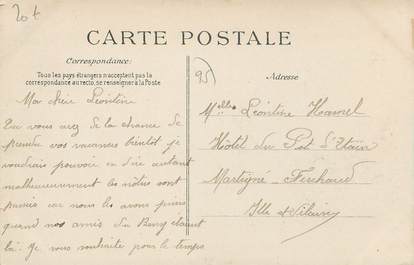 20t
CARTE POSTALE
Correspondance:
Tous les pays étrangers n'acceptent pas la
correspondance au recto, se renseigner à la Poste
95
Adresse
Ma chère Léontine
vous avez de la chance de
prendre vos vacances bientôt je
voudrais pouvoir en dire autant
malheureusement les nôtres sont
passées car nous les avons prises
quand nos amis Du étaient
là. Je vous souhaite pour le temps
Melle Léontine Hamel
Hôtel du Pot d'Etain
Martigné-Ferchaud
Ille et Vilaine